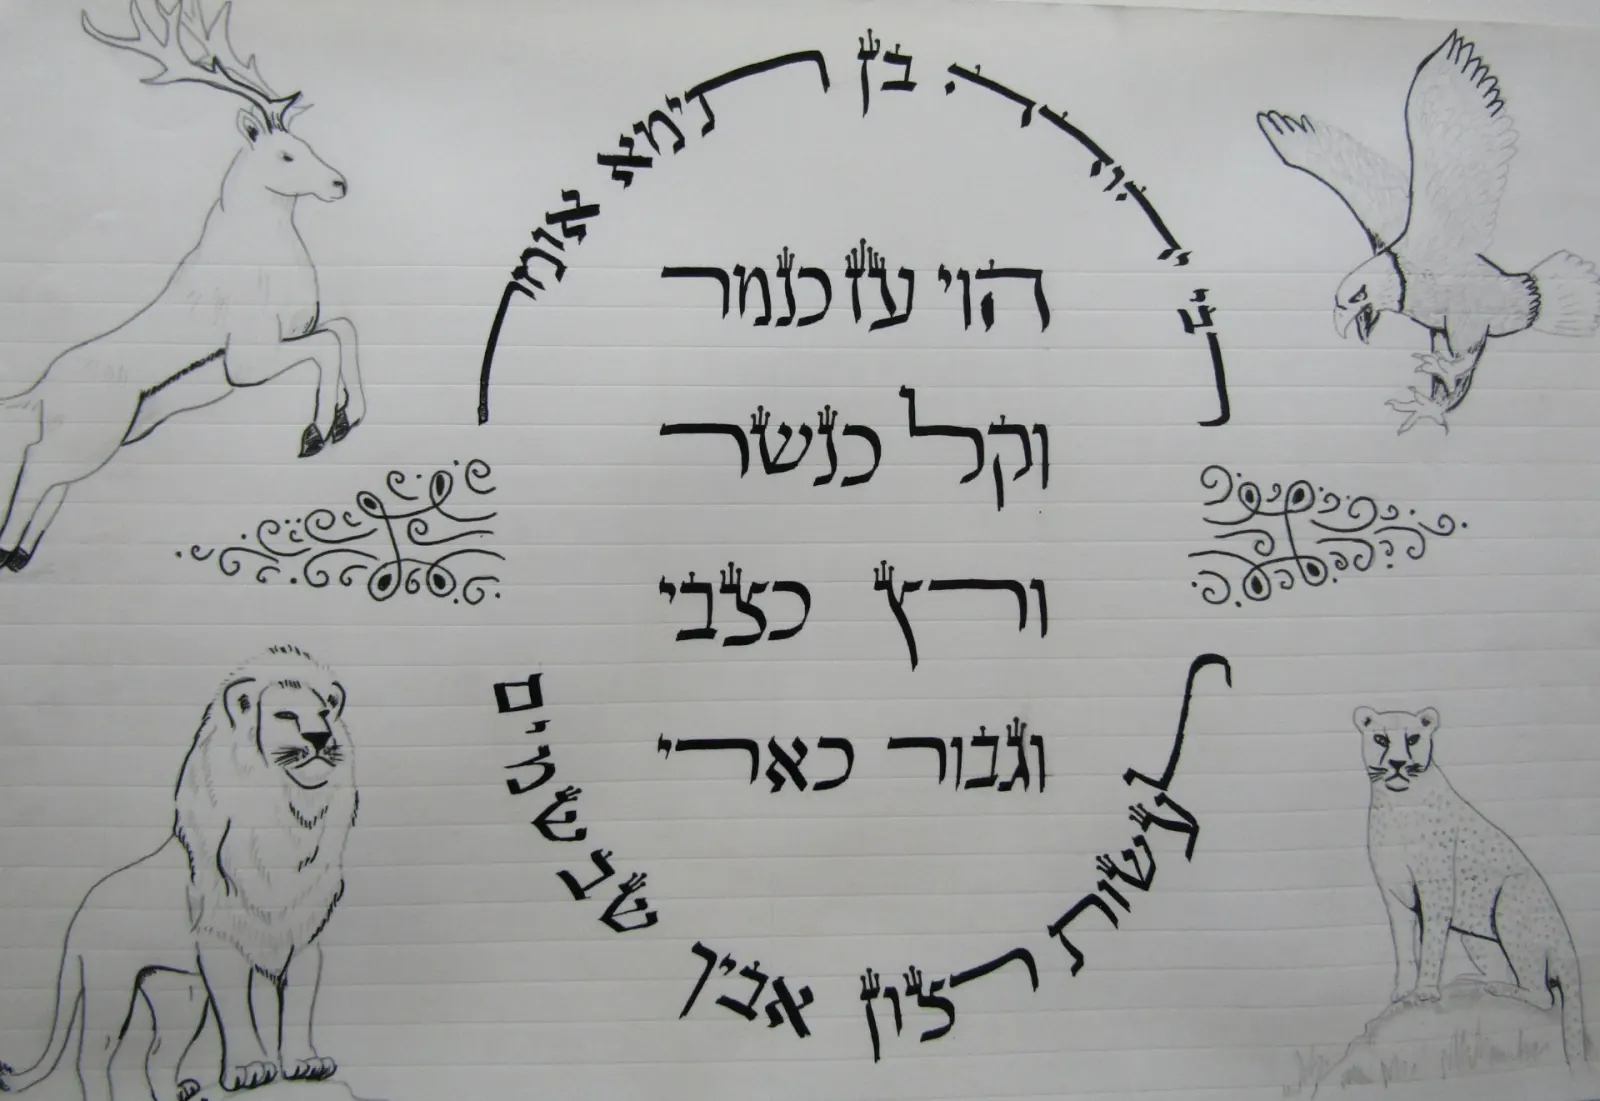 רבי יהודה בן תימא אומר
הוי עז כנמר
וקל כנשר
ורץ כצבי
וגבור כארי
לעשות רצון אביך שבשמים